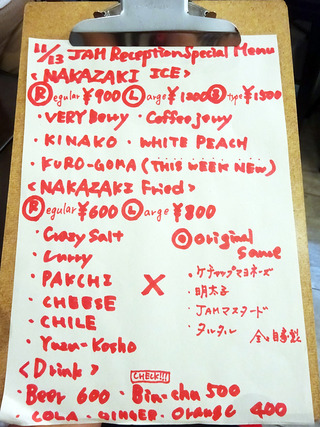 11/13 JAM Reception Special Menu
<NAKAZAKI ICE>
Regular ¥900 Large ¥1000 S type ¥1500
・VERY Bowy ・Coffee jowy
・KINAKO ・WHITE PEACH
・KURO-GOMA (THIS WEEK NEW)
<NAKAZAKI Fried>
Regular ¥600 Large ¥800
・Crazy Salt
・Curry
・PAKCHI
・CHEESE
・CHILE
・Yuzu-Kosho
×
◎Original Sauce
・ケチャップマヨネーズ
・明太子
・JAMマスタード
・タルタル
全て自家製
<Drink>
CHECK!!!
・Beer 600 ・Bin-chu 500
・COLA ・GINGER ・Orange 400